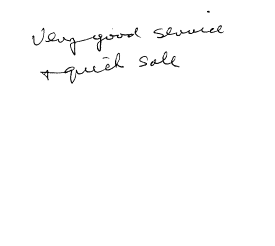 Very good service
+ quick sale